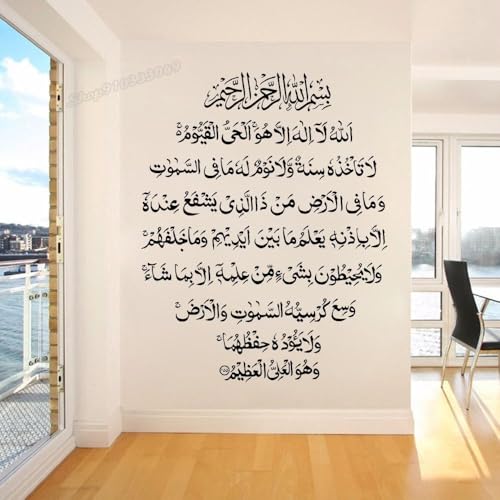 Shop910333069
بِسْمِ اللَّهِ الرَّحْمَٰنِ الرَّحِيمِ
اَللهُ لَآ اِلٰهَ اِلَّا هُوَۚ اَلْحَىُّ الْقَيُّوْمُۚ
لَا تَأْخُذُهٗ سِنَةٌ وَّلَا نَوْمٌ لَهٗ مَا فِى السَّمٰوٰتِ
وَمَا فِى الْاَرْضِ مَنْ ذَا الَّذِىْ يَشْفَعُ عِنْدَهٗٓ
اِلَّا بِاِذْنِهٖ يَعْلَمُ مَا بَيْنَ اَيْدِيْهِمْ وَمَا خَلْفَهُمْۚ
وَلَا يُحِيْطُوْنَ بِشَىْءٍ مِّنْ عِلْمِهٖٓ اِلَّا بِمَا شَآءَۚ
وَسِعَ كُرْسِيُّهُ السَّمٰوٰتِ وَالْاَرْضَۚ
وَلَا يَؤُدُهٗ حِفْظُهُمَاۚ
وَهُوَ الْعَلِىُّ الْعَظِيْمُ ۝٢٥٥